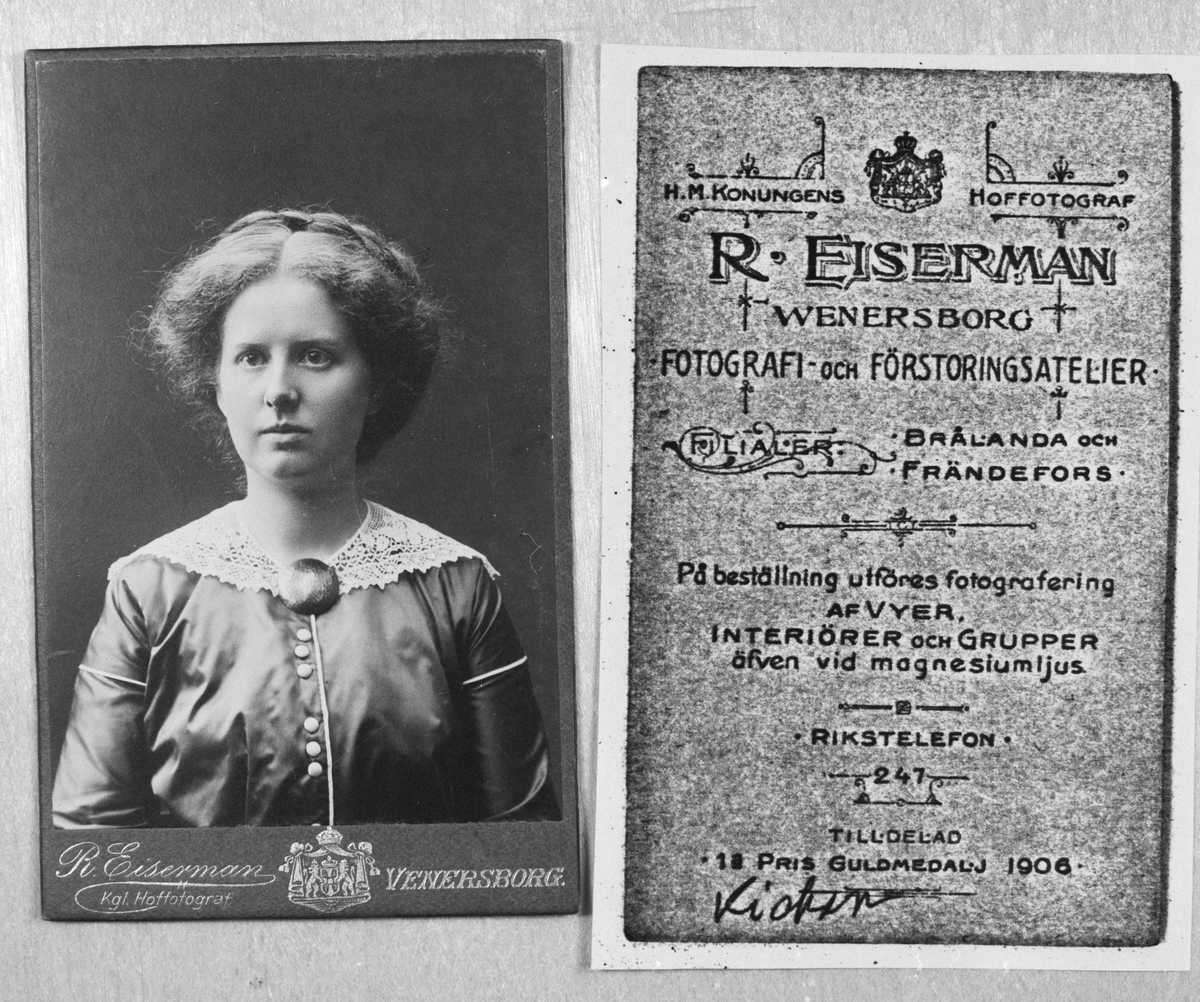 R. Eiserman
Kgl. Hoffotograf
VENERSBORG.
H.M. KONUNGENS HOFFOTOGRAF
R. EISERMAN
WENERSBORG
·FOTOGRAFI- OCH FÖRSTORINGSATELIER·
FILIALER: ·BRÅLANDA OCH
·FRÄNDEFORS·
På beställning utföres fotografering
AF VYER,
INTERIÖRER OCH GRUPPER
äfven vid magnesiumljus
·RIKSTELEFON·
247
TILLDELAD
·1a PRIS GULDMEDALJ 1906·